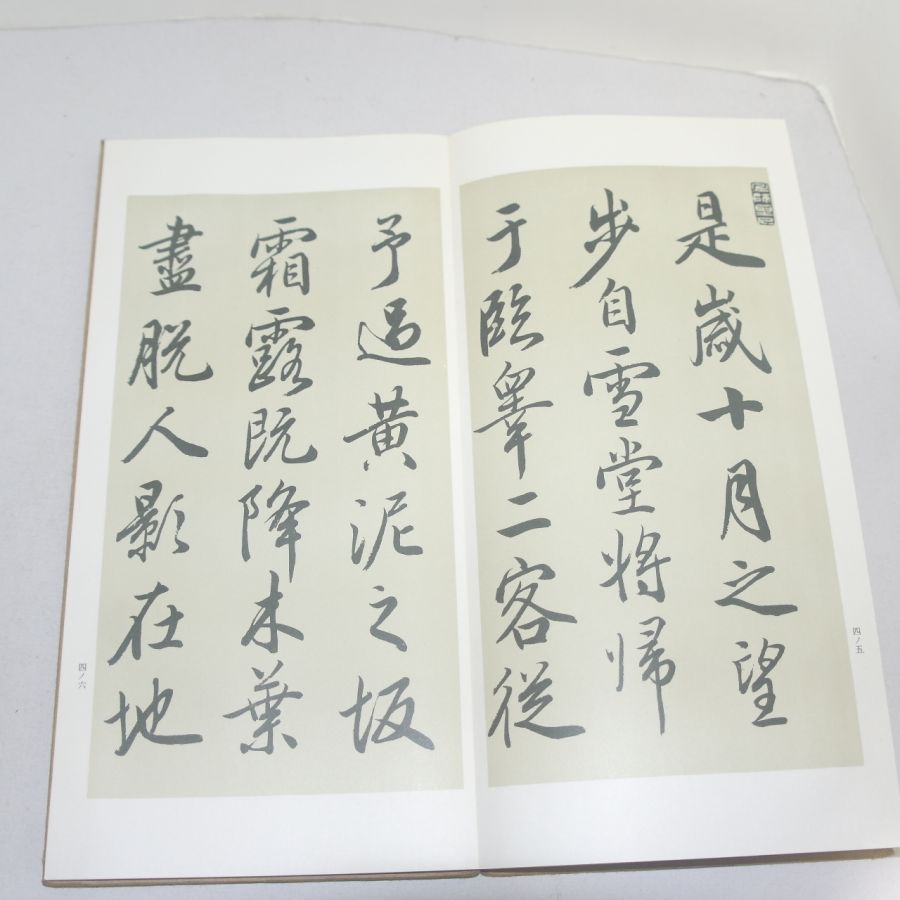 是歲十月之望
步自雪堂將歸
于臨皋二客從
四ノ五
予過黃泥之坂
霜露既降木葉
盡脱人影在地
四ノ六